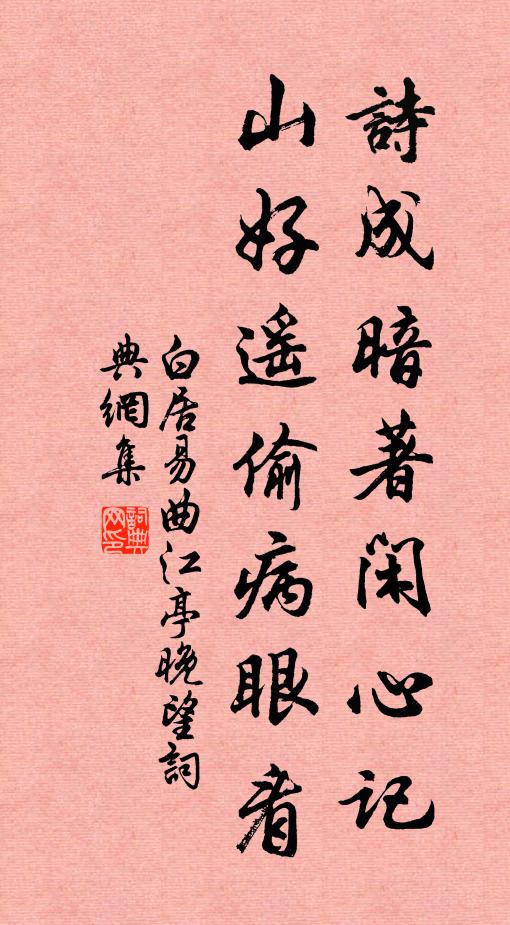 詩成暗著閑心記
山好遥偷病眼看
白居易曲江亭晚望詞
典網集
詞典网印